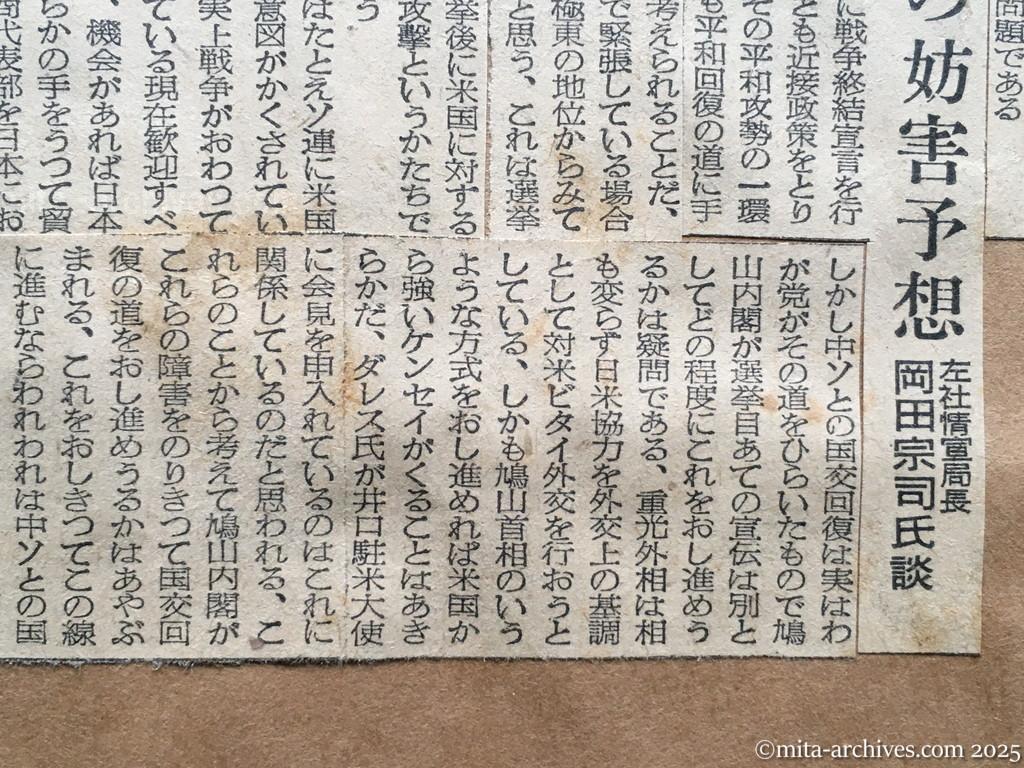 問題である
の妨害予想
左社情宣局長
岡田宗司氏談
に戦争終結宣言を行
とも近接政策をとり
その平和攻勢の一環
も平和回復の道に手
考えられることだ、
で緊張している場合
極東の地位からみて
と思う、これは選挙
挙後に米国に対する
攻撃というかたちで
う
はたとえソ連に米国
意図がかくされてい
実上戦争がおわつて
ている現在歓迎すべ
、機会があれば日本
らかの手をうつて貿
商代表部を日本にお
しかし中ソとの国交回復は実はわ
が党がその道をひらいたもので鳩
山内閣が選挙目あての宣伝は別と
してどの程度にこれをおし進めう
るかは疑問である、重光外相は相
も変らず日米協力を外交上の基調
として対米ビタイ外交を行おうと
している、しかも鳩山首相のいう
ような方式をおし進めれば米国か
ら強いケンセイがくることはあき
らかだ、ダレス氏が井口駐米大使
に会見を申入れているのはこれに
関係しているのだと思われる、こ
れらのことから考えて鳩山内閣が
これらの障害をのりきつて国交回
復の道をおし進めうるかはあやぶ
まれる、これをおしきつてこの線
に進むならわれわれは中ソとの国
©mita-archives.com 2025